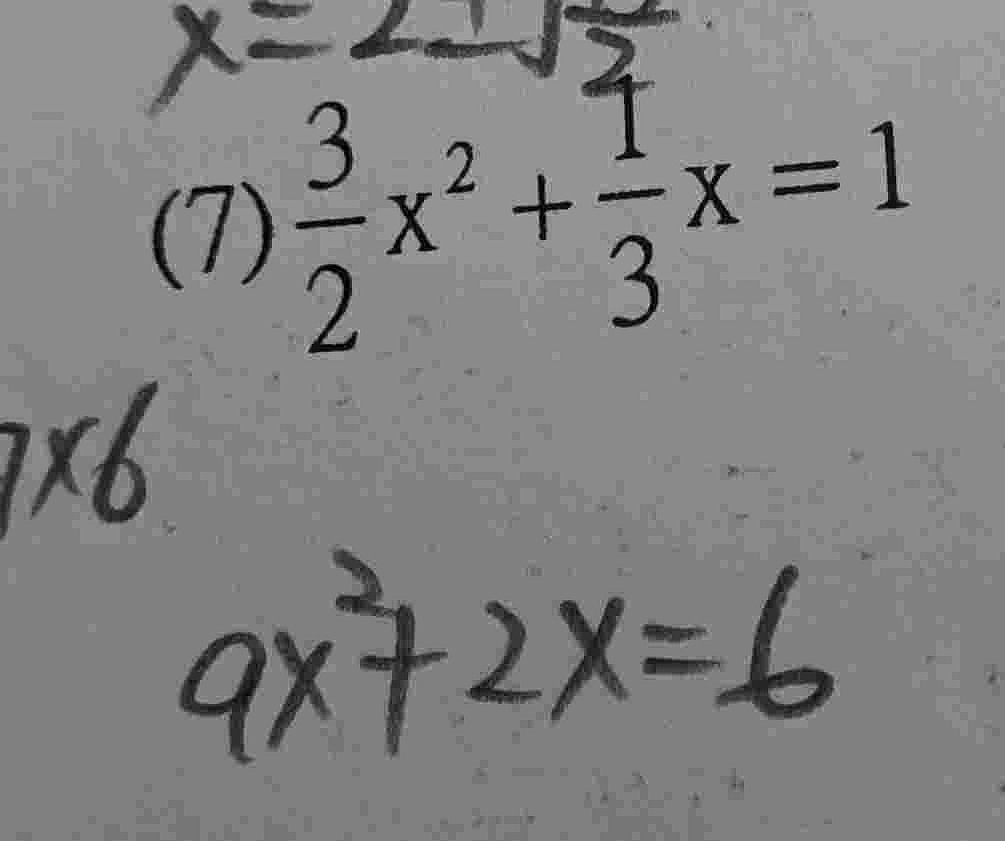 x = 2 ± √ /2
(7) 3/2 x² + 1/3 x = 1
x6
9x² + 2x = 6